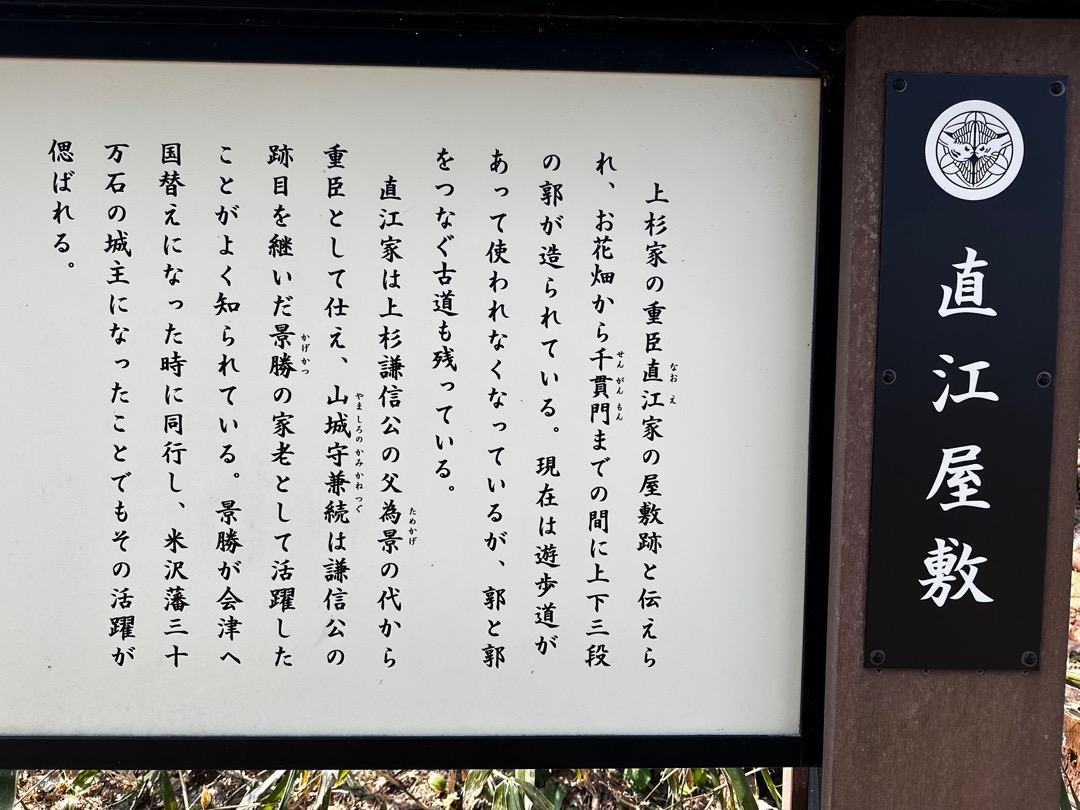 直江屋敷
上杉家の重臣直江家の屋敷跡と伝えら
れ、お花畑から千貫門までの間に上下三段
の郭が造られている。現在は遊歩道が
あって使われなくなっているが、郭と郭
をつなぐ古道も残っている。
直江家は上杉謙信公の父為景の代から
重臣として仕え、山城守兼続は謙信公の
跡目を継いだ景勝の家老として活躍した
ことがよく知られている。景勝が会津へ
国替えになった時に同行し、米沢藩三十
万石の城主になったことでもその活躍が
偲ばれる。
なおえ
せんがんもん
ためかげ
やましろのかみかねつぐ
かげかつ